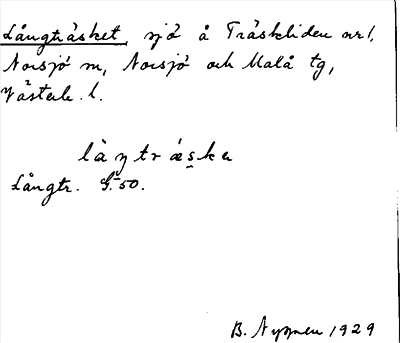 Långträsket, sjö å Träskliden nr 1,
Norsjö sn, Norsjö och Malå tg,
Västerb. l.
låŋtræska
Långtr. G. 50.
B. Nyman 1929